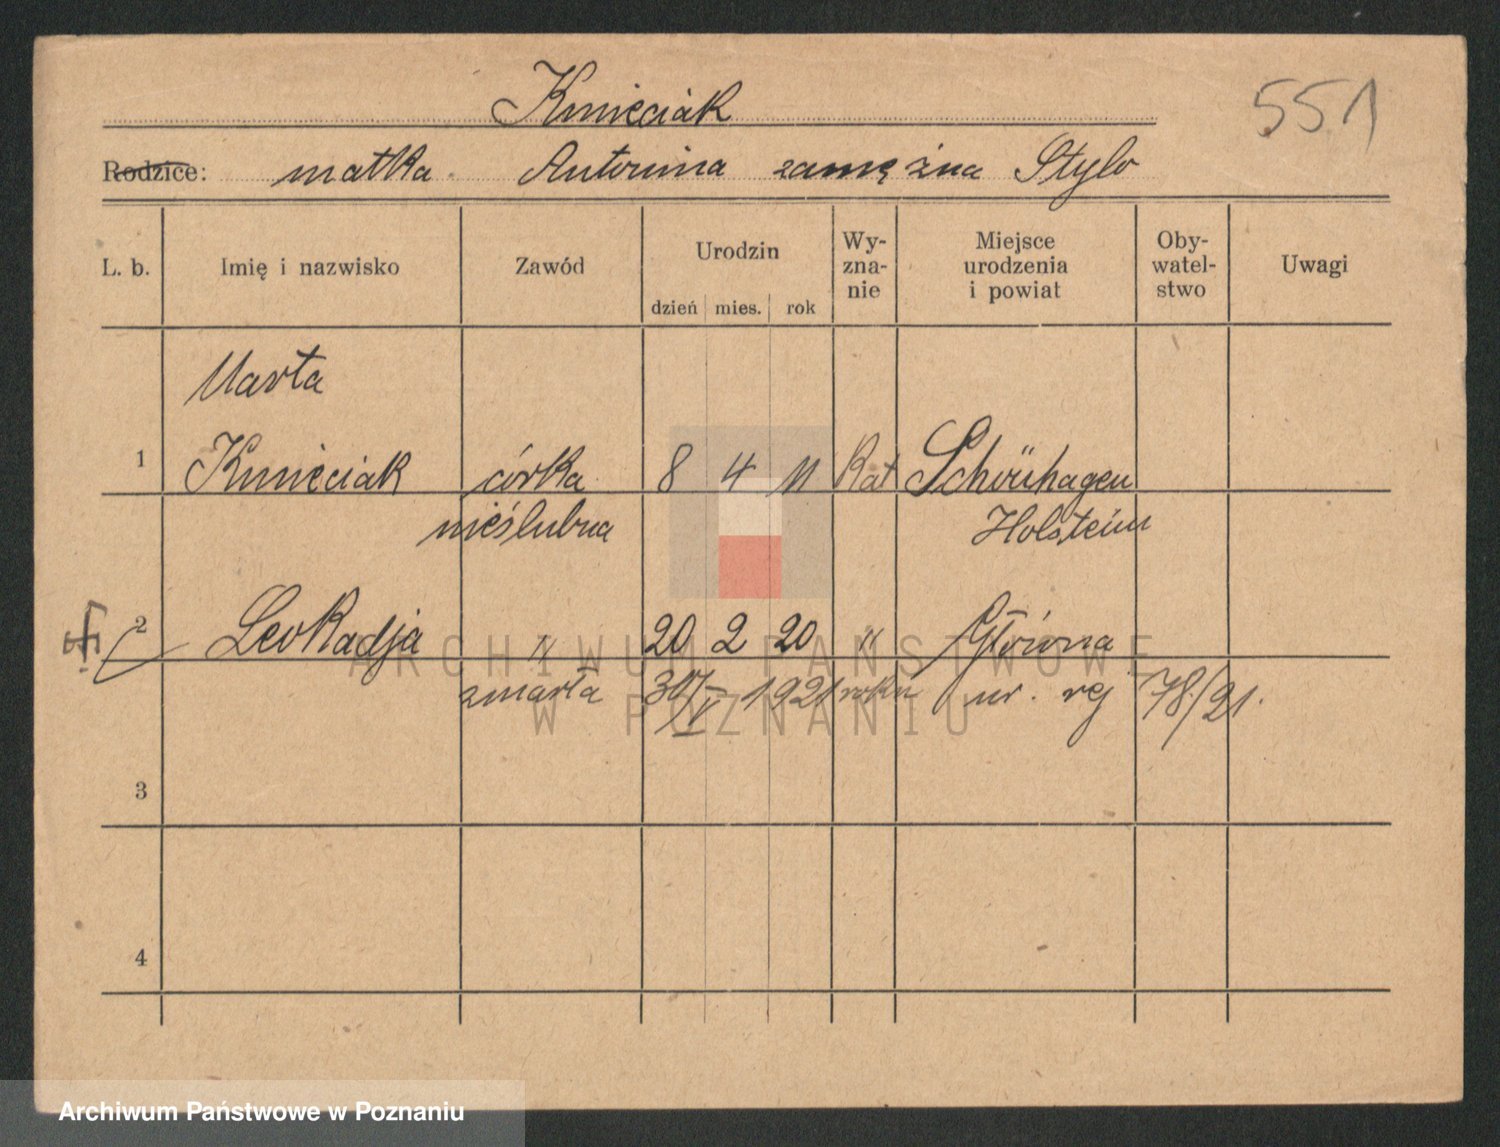 Kmieciak
551
Rodzice: matka Antonina zamężna Stylo
L. b. Imię i nazwisko Zawód Urodzin dzień mies. rok Wy-zna-nie Miejsce urodzenia i powiat Oby-watel-stwo Uwagi
Marta
1 Kmieciak córka 8 4 11 Kat Schönhagen
nieślubna Holstein
2 Leokadja " 20 2 20 " Główna
zmarła 30/V 1921 roku nr. rej 78/21.
3
4
ARCHIWUM PAŃSTWOWE
W POZNANIU
Archiwum Państwowe w Poznaniu